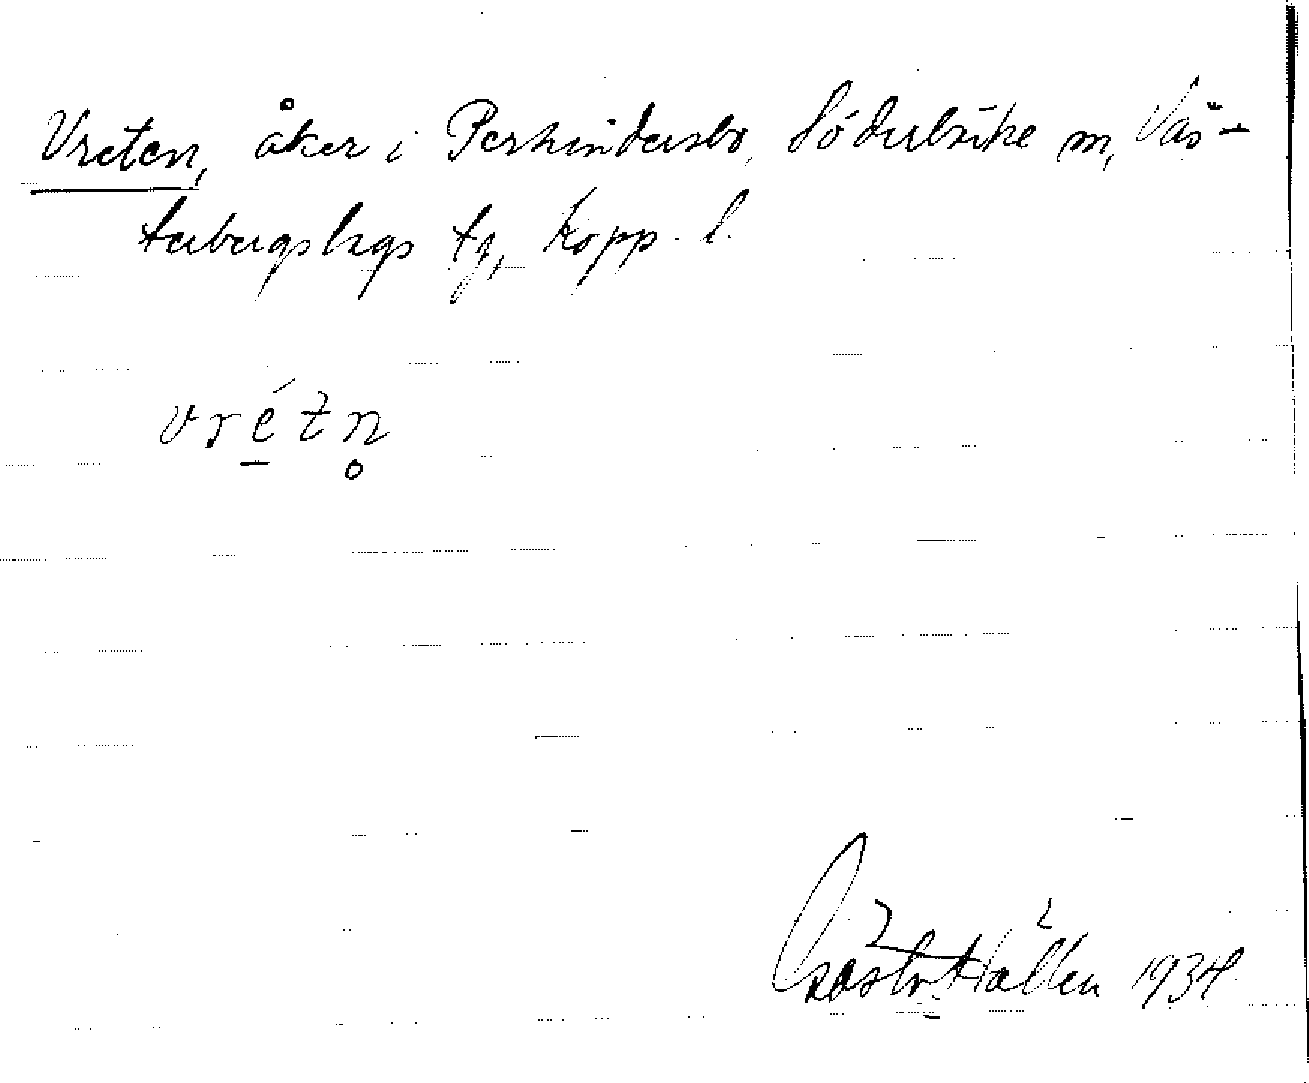 Vreten, åker i Perhindersbo, Söderbärke m, Väs-
terbergslags tg, Kopp. l.
vrétn̥
Hällen 1934